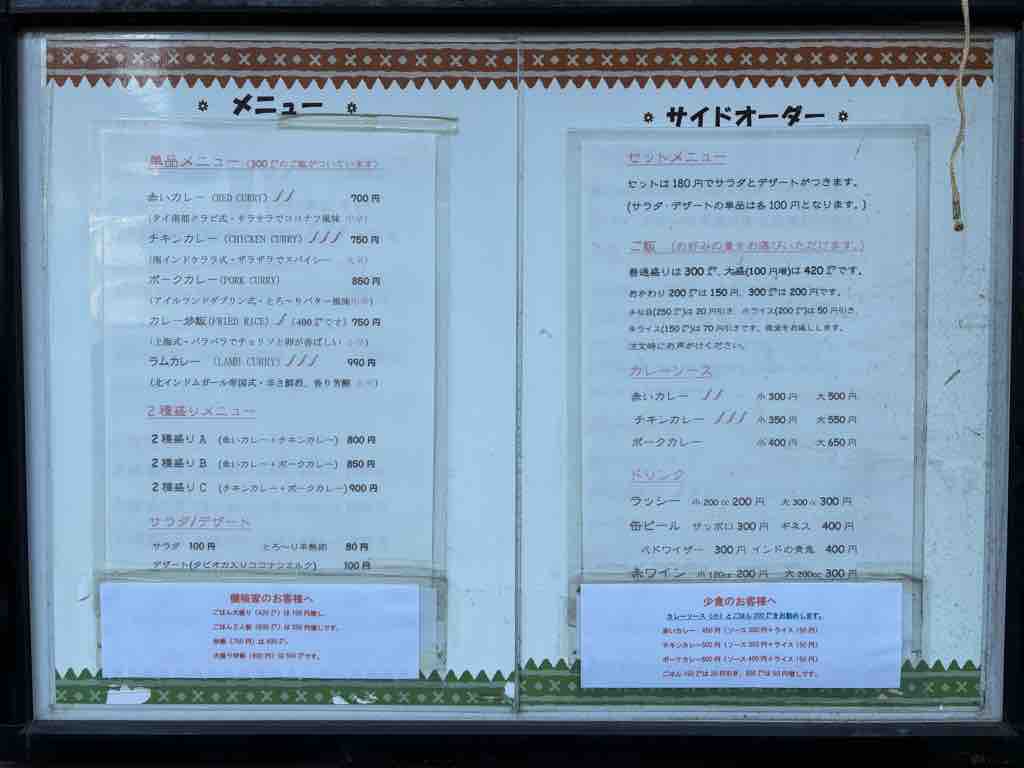 メニュー
単品メニュー (300㌘のご飯がついています)
赤いカレー (RED CURRY) 700円
(タイ南部クラビ式・サラサラでココナツ風味 中辛)
チキンカレー (CHICKEN CURRY) 750円
(南インドケララ式・ザラザラでスパイシー
ポークカレー (PORK CURRY) 850円
(アイルランドダブリン式・とろ～りバター風味
カレー炒飯 (FRIED RICE) (400㌘です) 750円
(上海式・パラパラでチョリソと卵が香ばしい
ラムカレー (LAMB CURRY) 990円
(北インドムガール帝国式・辛さ鮮烈、香り芳醇
2種盛りメニュー
2種盛りA (赤いカレー+チキンカレー) 800円
2種盛りB (赤いカレー+ポークカレー) 850円
2種盛りC (チキンカレー+ポークカレー) 900円
サラダ/デザート
サラダ 100円 とろ～り半熟卵 80円
デザート(タピオカ入りココナツミルク) 100円
健啖家のお客様へ
ごはん大盛り (420㌘) は100円増し、
サイドオーダー
セットメニュー
セットは180円でサラダとデザートがつきます。
(サラダ・デザートの単品は各100円となります。)
ご飯 (お好みの量をお選びいただけます。)
普通盛りは300㌘、大盛(100円増)は420㌘です。
おかわり200㌘は150円、300㌘は200円です。
少な目(250㌘)は20円引き、小ライス(200㌘)は50円引き、
半ライス(150㌘)は70円引きです。
注文時にお声がけください。
カレーソース
赤いカレー 小300円 大500円
チキンカレー 小350円 大550円
ポークカレー 小400円 大650円
ドリンク
ラッシー 小200cc 200円 大300cc 300円
缶ビール サッポロ300円 ギネス 400円
バドワイザー 300円 インドの青鬼 400円
赤ワイン 小120cc 200円 大200cc 300円
少食のお客様へ
カレーソース (小) とごはん200㌘をお勧めします。
赤いカレー 450円 (ソース300円+ライス150円)
チキンカレー500円 (ソース350円+ライス150円)
ポークカレー550円 (ソース400円+ライス150円)